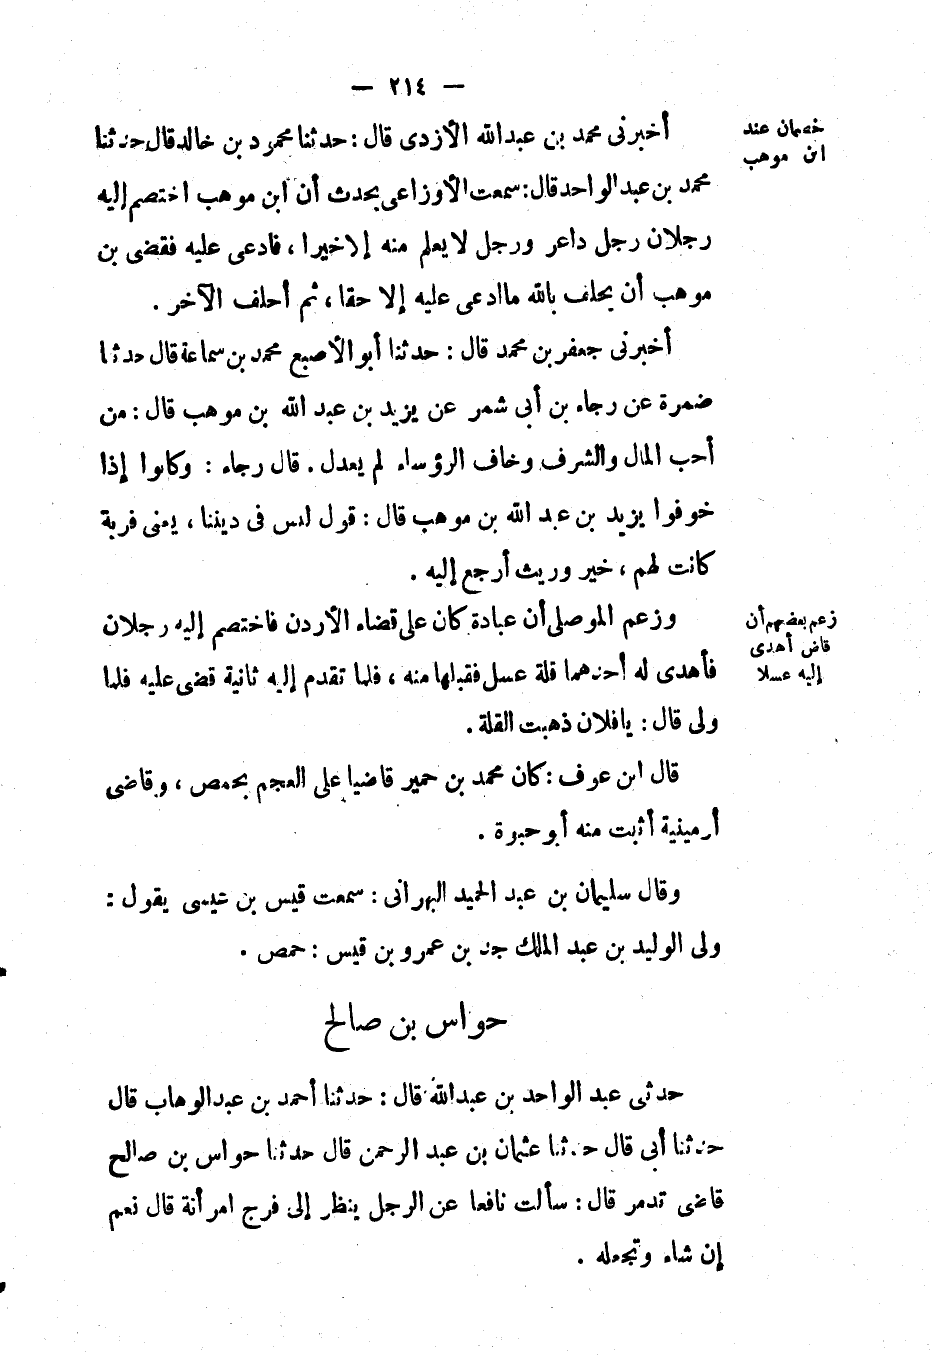 — ٢١٤ —
خصمان عند
ابن موهب
أخبرنى محمد بن عبدالله الأزدى قال : حدثنا محمود بن خالد قال حدثنا
محمد بن عبد الواحد قال : سمعت الأوزاعى يحدث أن ابن موهب اختصم إليه
رجلان رجل داعر ورجل لا يعلم منه إلا خيرا ، فادعى عليه فقضى بن
موهب أن يحلف بالله ما ادعى عليه إلا حقا ، ثم أحلف الآخر .
أخبرنى جعفر بن محمد قال : حدثنا أبو الأصبع محمد بن سماعة قال حدثنا
ضمرة عن رجاء بن أبى شمر عن يزيد بن عبد الله بن موهب قال : من
أحب المال والشرف وخاف الرؤساء لم يعدل . قال رجاء : وكانوا إذا
خوفوا يزيد بن عبد الله بن موهب قال : قول ليس فى ديننا ، يعنى قرية
كانت لهم ، خير وريث أرجع إليه .
زعم بعضهم أن
قاض أهدى
إليه عسلا
وزعم الموصلى أن عبادة كان على قضاء الأردن فاختصم إليه رجلان
فأهدى له أحدهما قلة عسل فقبلها منه ، فلما تقدم إليه ثانية قضى عليه فلما
ولى قال : يافلان ذهبت القلة .
قال ابن عوف : كان محمد بن حمير قاضيا على العجم بحمص ، وقاضى
أرمينية أثبت منه أبو حيوة .
وقال سليمان بن عبد الحميد البهرانى : سمعت قيس بن عيسى يقول :
ولى الوليد بن عبد الملك جد بن عمرو بن قيس : حمص .
حواس بن صالح
حدثى عبد الواحد بن عبدالله قال : حدثنا أحمد بن عبدالوهاب قال
حدثنا أبى قال حدثنا عثمان بن عبد الرحمن قال حدثنا حواس بن صالح
قاضى تدمر قال : سألت نافعا عن الرجل ينظر إلى فرج امرأنة قال نعم
إن شاء وتجعله .